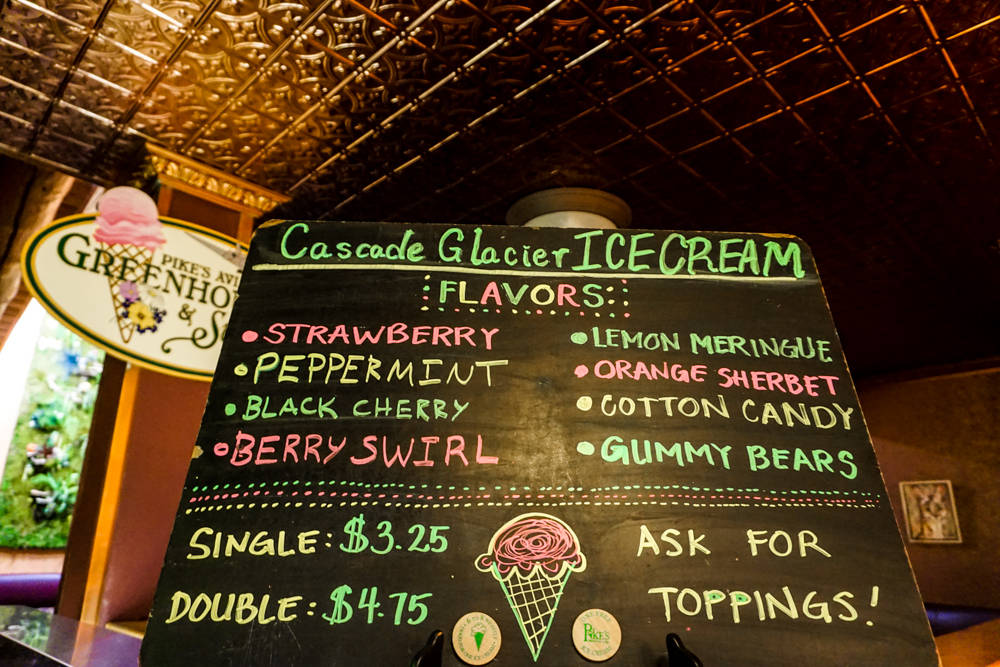 Cascade Glacier ICE CREAM
FLAVORS
• STRAWBERRY
• PEPPERMINT
• BLACK CHERRY
• BERRY SWIRL
• LEMON MERINGUE
• ORANGE SHERBET
• COTTON CANDY
• GUMMY BEARS
SINGLE: $3.25
DOUBLE: $4.75
ASK FOR
TOPPINGS!
PIKE'S
PIKE'S
GREENHO
&